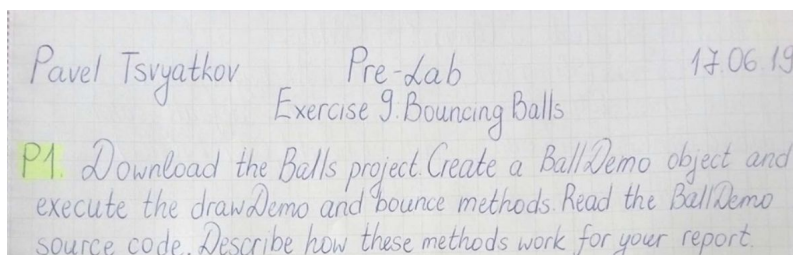 Pavel Tsvyatkov Pre-Lab 17.06.19
Exercise 9. Bouncing Balls
P1. Download the Balls project. Create a BallDemo object and
execute the drawDemo and bounce methods. Read the BallDemo
source code. Describe how these methods work for your report.